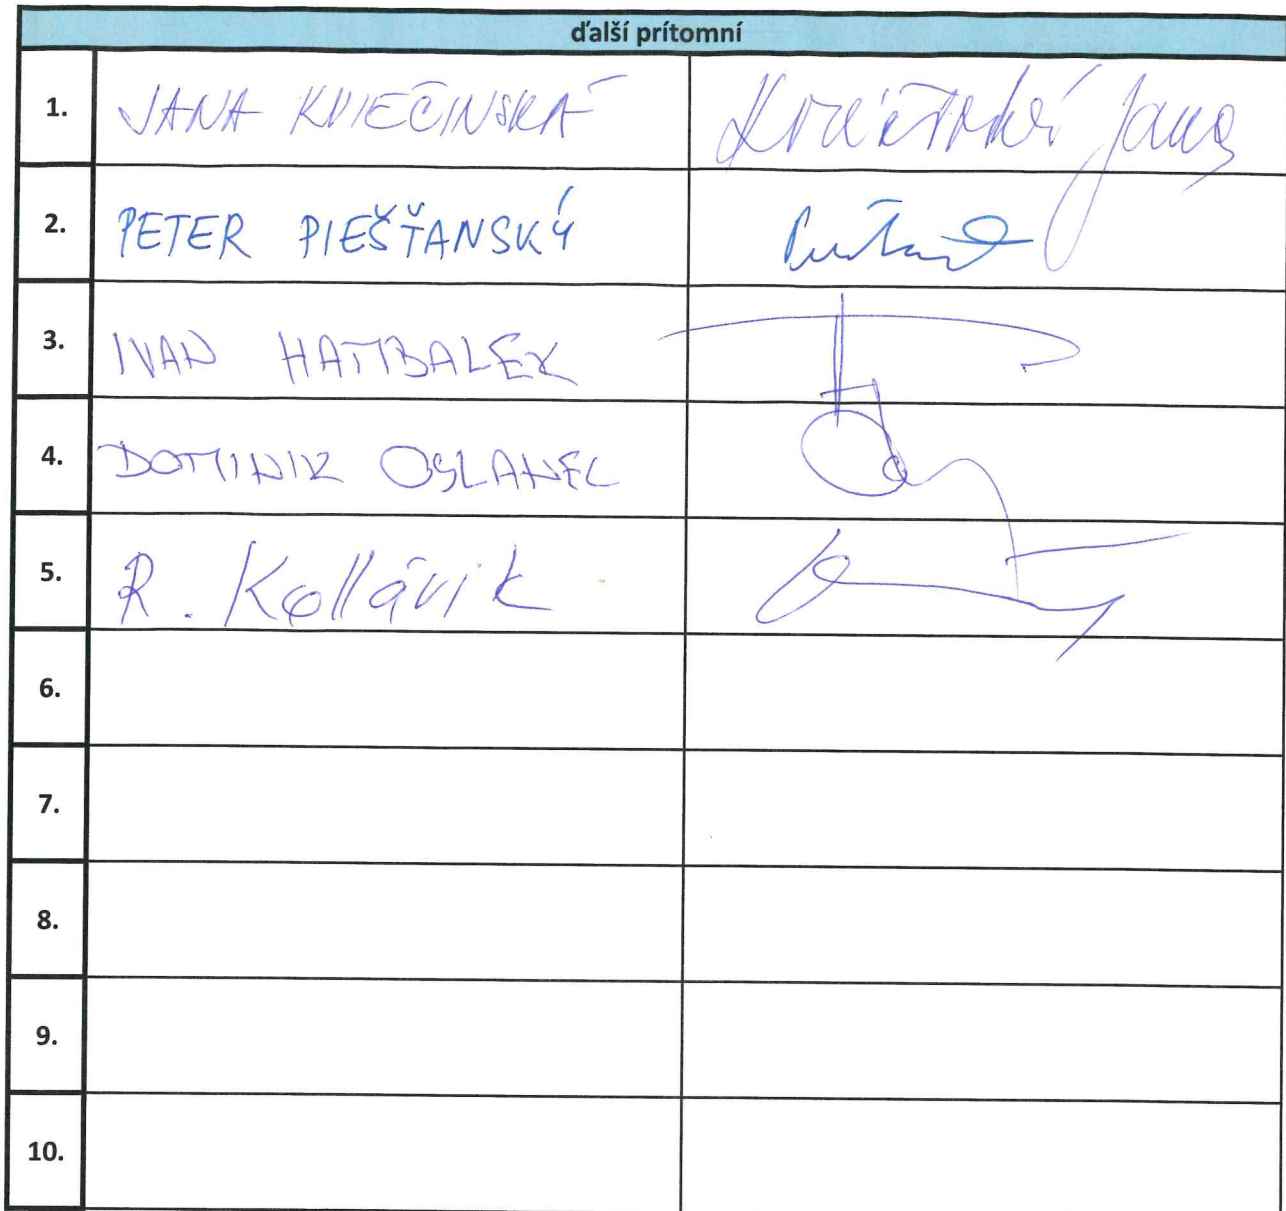 ďalší prítomní
1. JANA KVIEČINSKÁ
2. PETER PIEŠŤANSKÝ
3. IVAN HAMBALEK
4. DOMINIK OSLANEC
5. R. Kollárik
6.
7.
8.
9.
10.